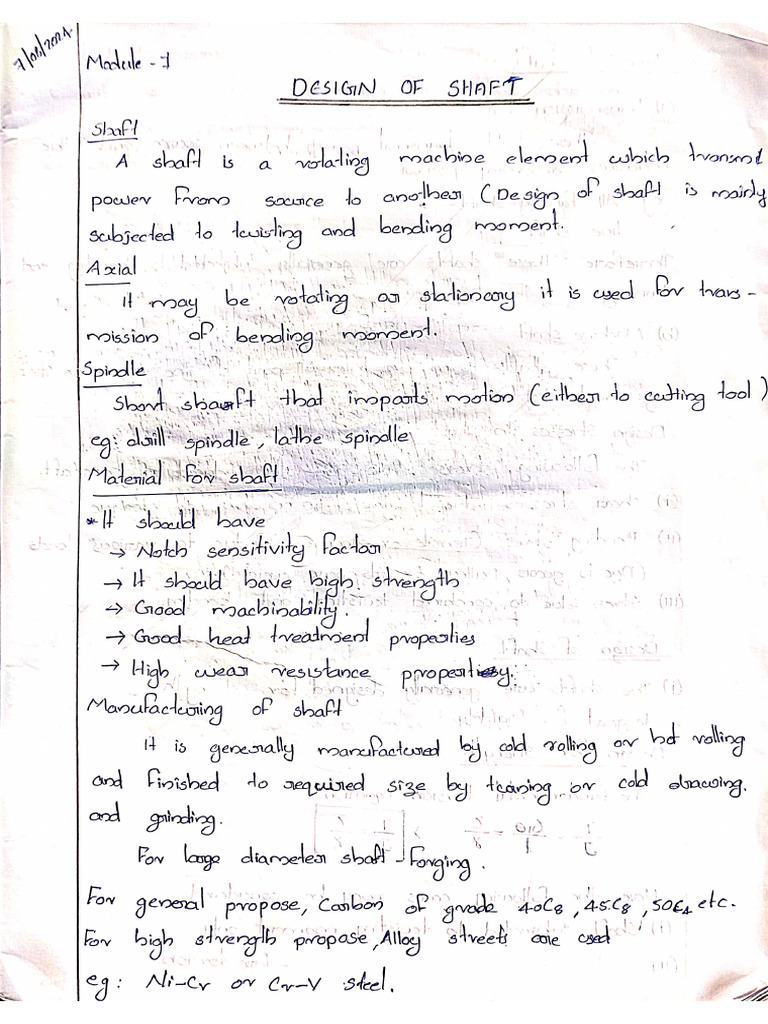 7/06/2024
Module - 1
DESIGN OF SHAFT
Shaft
A shaft is a rotating machine element which transmit
power from source to another (Design of shaft is mainly
subjected to twisting and bending moment.
Axial
It may be rotating or stationary it is used for trans-
mission of bending moment.
Spindle
Short shaft that imparts motion (either to cutting tool)
eg: drill spindle, lathe spindle
Material for shaft
* It should have
→ Notch sensitivity factor
→ It should have high strength
→ Good machinability.
→ Good heat treatment properties
→ High wear resistance property.
Manufacturing of shaft
It is generally manufactured by cold rolling or hot rolling
and finished to required size by turning or cold drawing.
and grinding.
For large diameter shaft - Forging.
For general propose, Carbon of grade 40C8, 45C8, 50C4 etc.
For high strength propose, Alloy streets are used
eg: Ni-Cr or Cr-V steel.